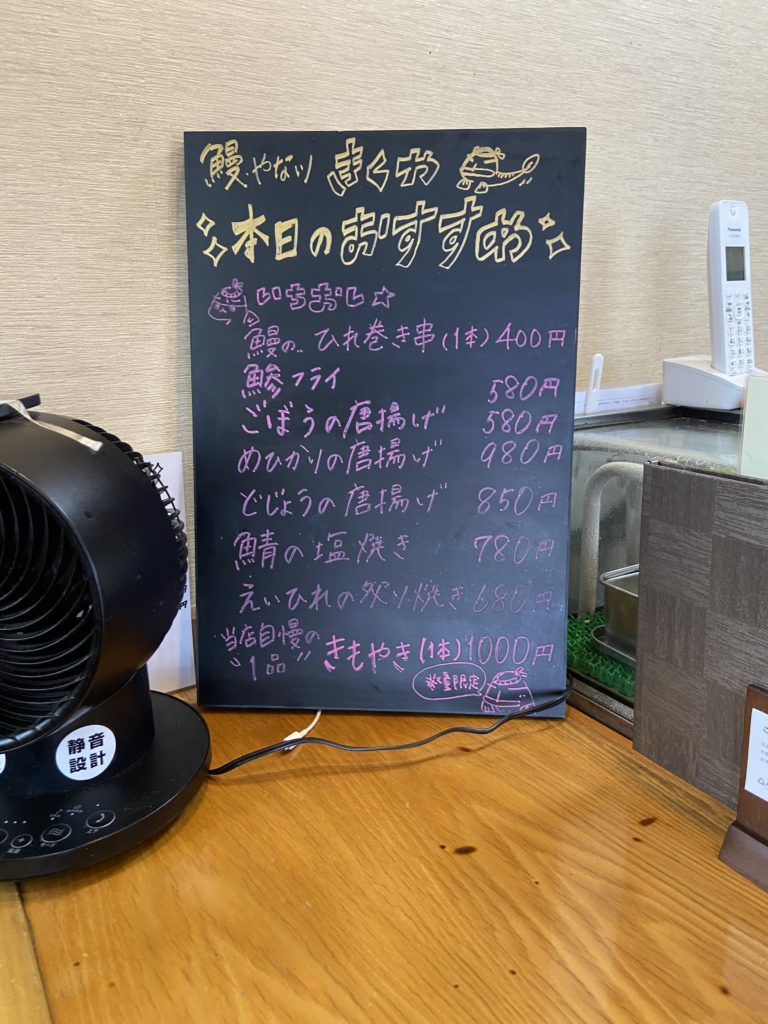 鰻 やない まくや
本日のおすすめ
いちおし☆
鰻の ひれ巻き串(1本)400円
鯵フライ 580円
ごぼうの唐揚げ 580円
めひかりの唐揚げ 980円
どじょうの唐揚げ 850円
鯖の塩焼き 780円
えいひれの炙り焼き 680円
当店自慢の
"1品" きもやき(1本)1000円
数量限定
Panasonic
静音
設計